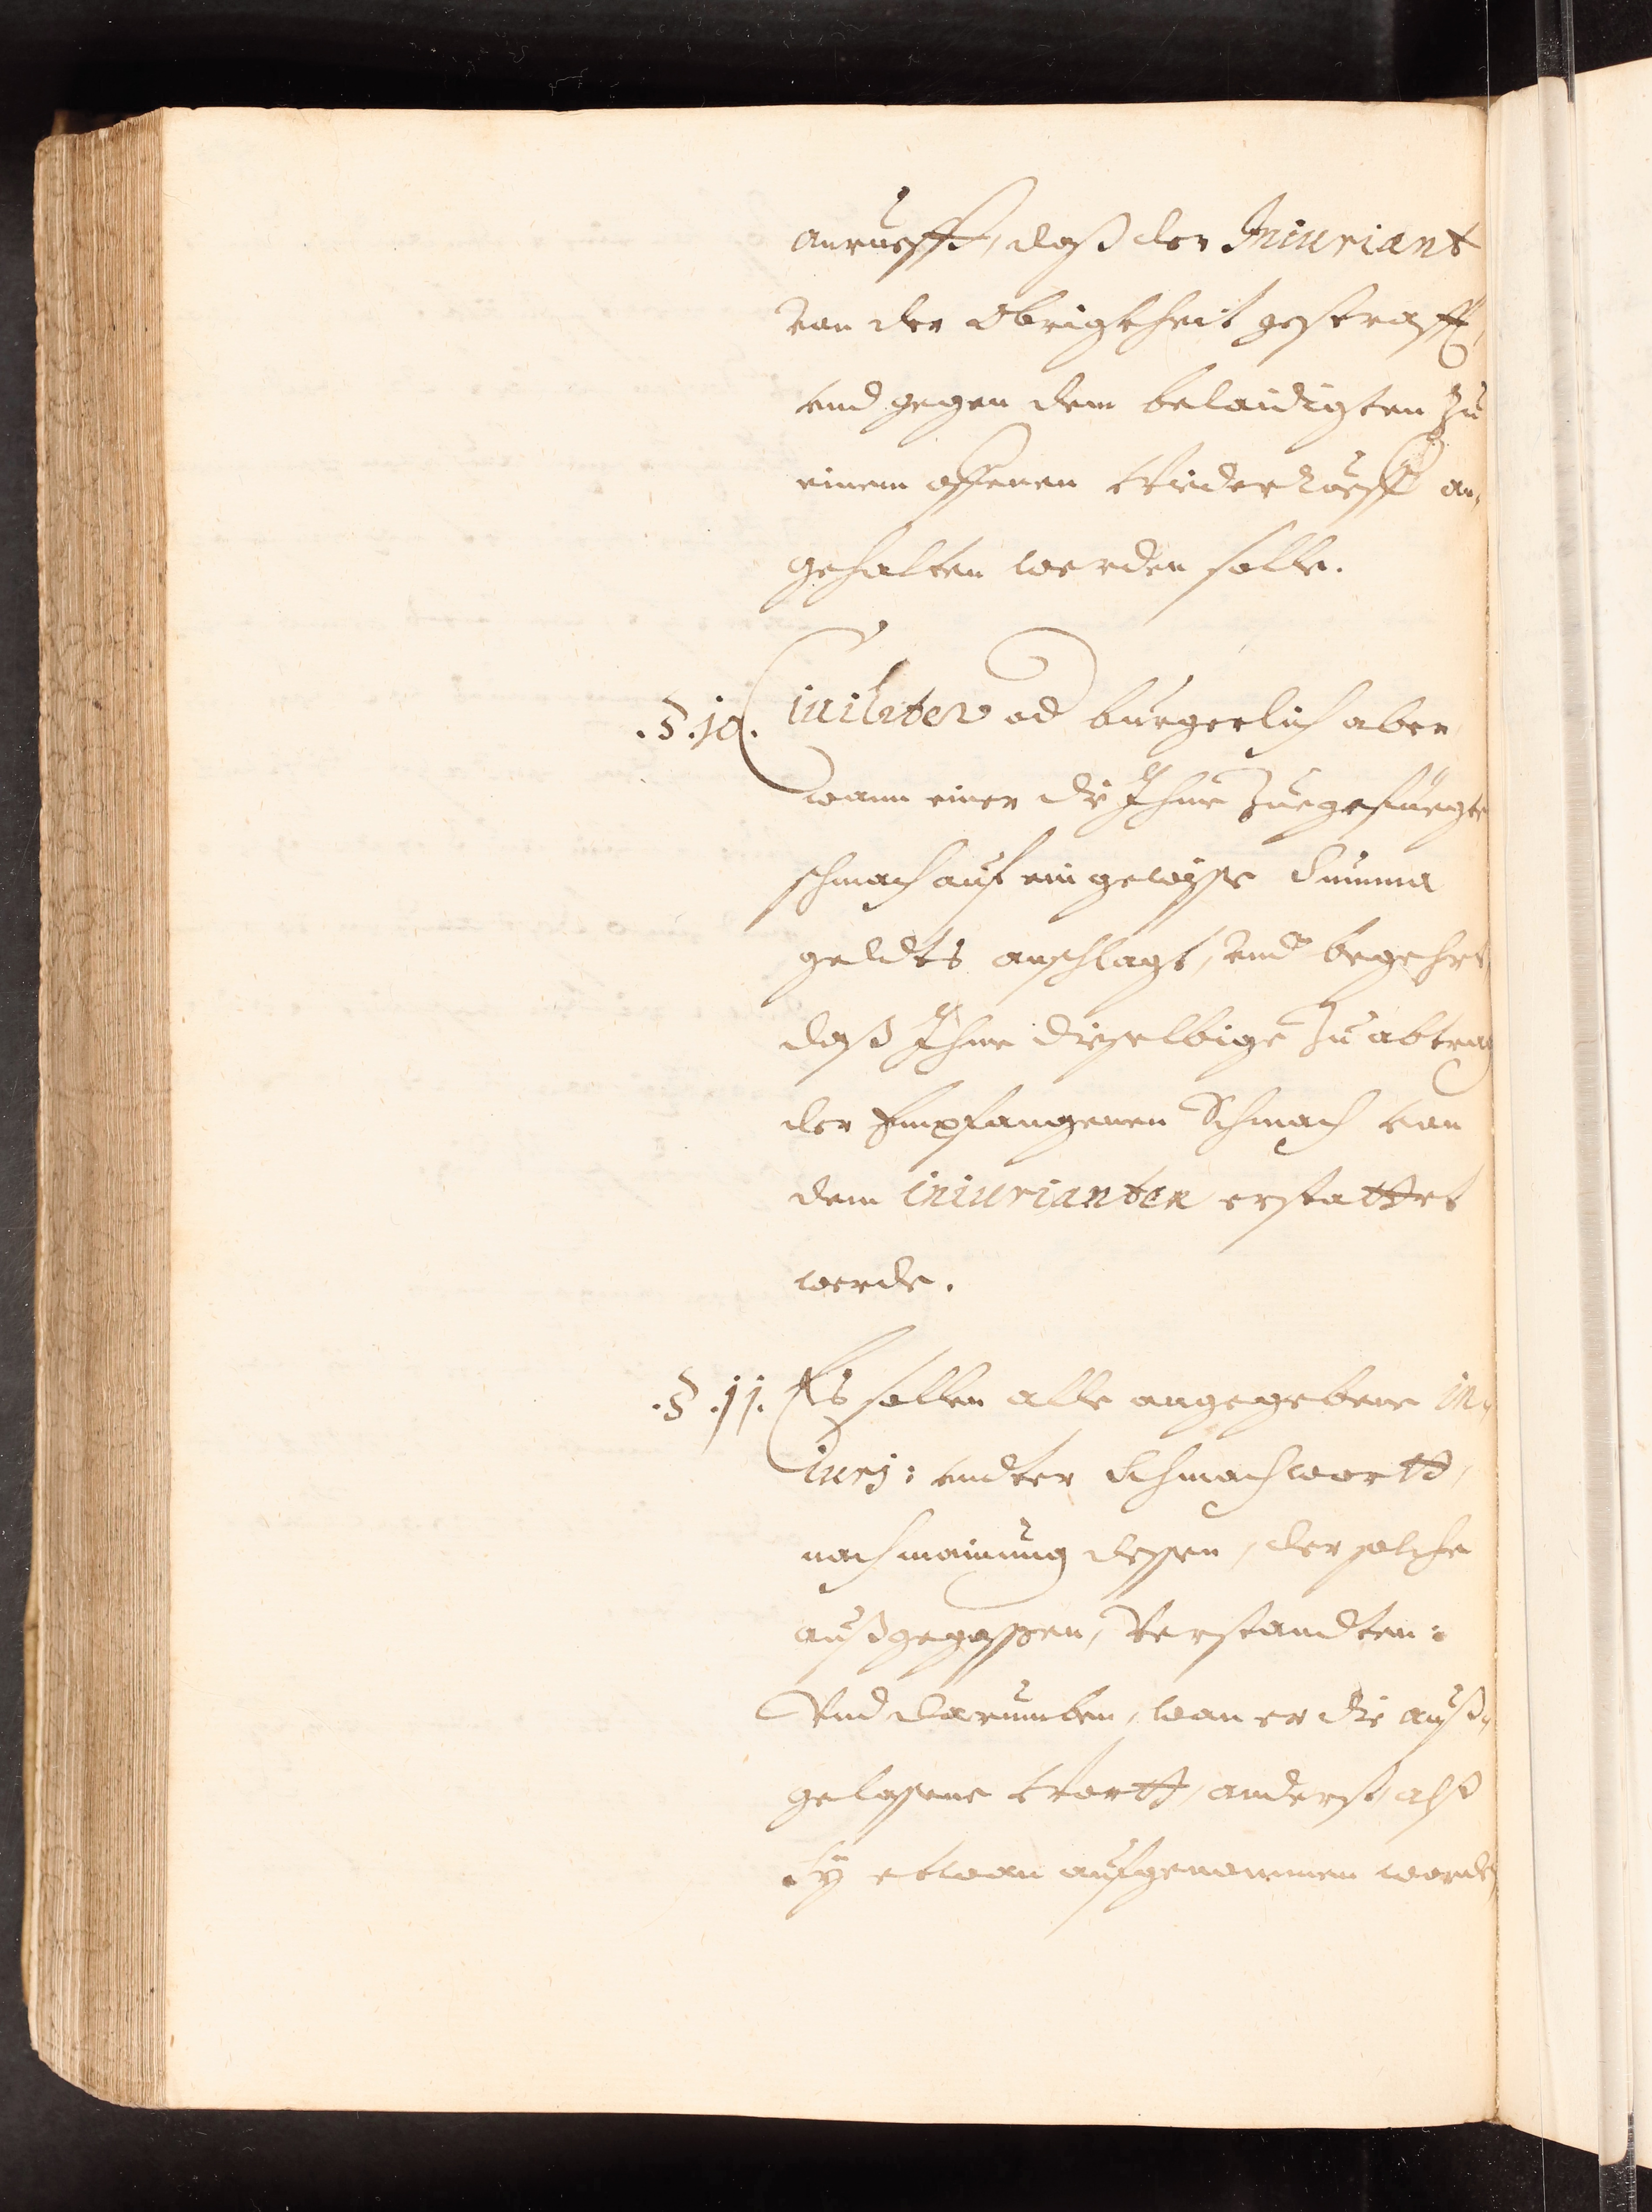 anruefft, daß der Iniuriant
von der Obrigkheit gestrafft,
vnd gegen dem belaidigten zu
einem offenen Widerrueff an„
gehalten werden solle.
.§.10. Ciuiliter od burgerlich aber
wann einer die Ihme zuegefüegte
schmach auf ein gewisse Summa
geldts anschlagt, vnd begehrt,
daß Ihme dieselbige zu abtrag
der Empfangenen Schmach von
dem iniurianten erstattet
werde.
.§.11. Es sollen alle angegebene in„
iurj: vndter Schmachwortt,
nach mainung dessen, der solche
außgegossen, Verstandten:
Vnd darumben, wan er die auß„
gelassene Wortt, anderst, alß
Sÿ etwan aufgenommen worden,